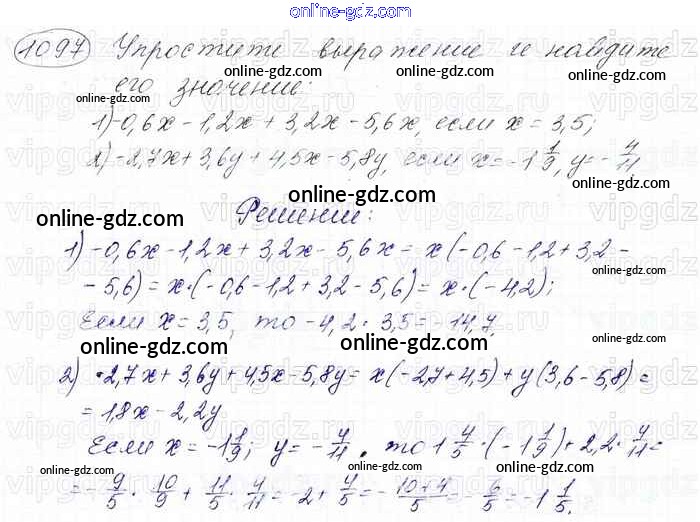 online-gdz.com
1097 Упростите выражение и найдите
online-gdz.com online-gdz.com
его значение:
online-gdz.com online-gdz.com
1) -0,6x - 1,2x + 3,2x - 5,6x, если x = 3,5;
2) -2,7x + 3,6y + 4,5x - 5,8y, если x = -1 1/9, y = -4/11
online-gdz.com
online-gdz.com
online-gdz.com
Решение:
1) -0,6x - 1,2x + 3,2x - 5,6x = x(-0,6 - 1,2 + 3,2 -
online-gdz.com
- 5,6) = x·(-0,6 - 1,2 + 3,2 - 5,6) = x·(-4,2);
Если x = 3,5, то -4,2 · 3,5 = -14,7.
online-gdz.com online-gdz.com online-gdz.com
2) -2,7x + 3,6y + 4,5x - 5,8y = x(-2,7 + 4,5) + y(3,6 - 5,8) =
= 1,8x - 2,2y
online-gdz.com
Если x = -1 1/9; y = -4/11, то 1 4/5 · (-1 1/9) + 2,2 · 4/11 =
online-gdz.com online-gdz.com online-gdz.com
= -9/5 · 10/9 + 11/5 · 4/11 = -2 + 4/5 = -10+4/5 = -6/5 = -1 1/5.
online-gdz.com